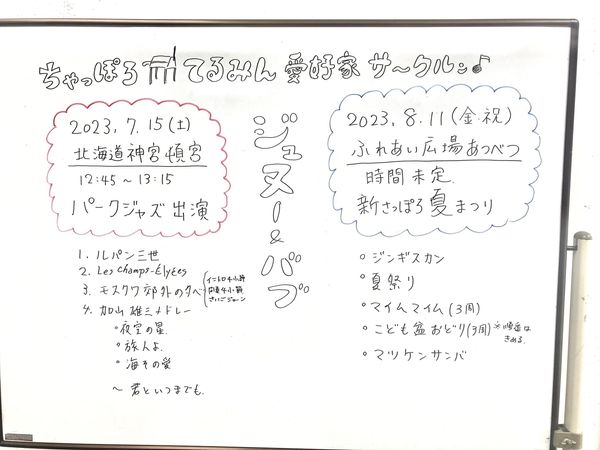 ちゃっぽろ てるみん 愛好家 サ〜クル♪
2023, 7.15(土)
北海道神宮頓宮
12:45〜13:15
パークジャズ出演
1. ルパン三世
2. Les Champs-Élysées
3. モスクワ郊外の夕べ
イントロ4小節
間奏4小節
さいごジャーン
4. 加山雄三メドレー
°夜空の星
°旅人よ
°海その愛
〜 君といつまでも.
ジュヌー&バブ
2023, 8.11(金・祝)
ふれあい広場あつべつ
時間 未定.
新さっぽろ 夏まつり
°ジンギスカン
°夏祭り
°マイムマイム(3周)
°こども盆おどり(3周) ※順番は
きめる.
°マツケンサンバ